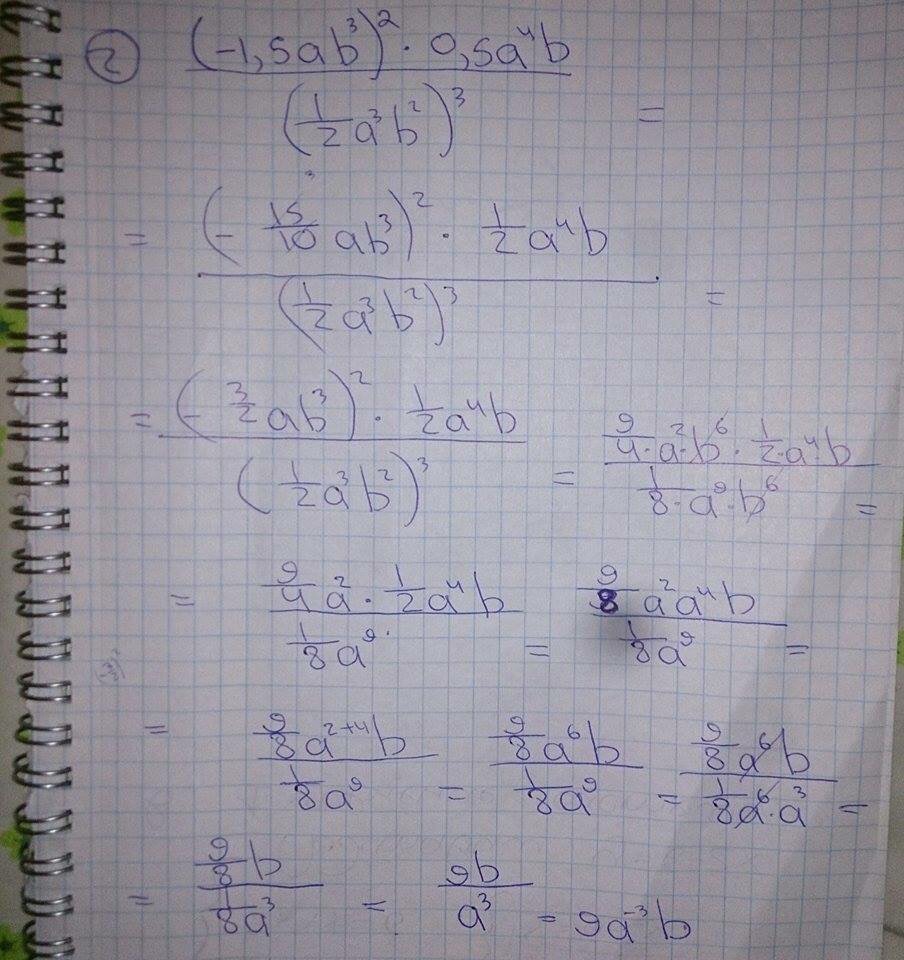 ② (-1,5ab³)² · 0,5a⁴b / (1/2 a³b²)³ =
= (- 15/10 ab³)² · 1/2 a⁴b / (1/2 a³b²)³ =
= (- 3/2 ab³)² · 1/2 a⁴b / (1/2 a³b²)³ = 9/4 · a² · b⁶ · 1/2 · a⁴ · b / 1/8 · a⁹ · b⁶ =
= 9/4 a² · 1/2 a⁴b / 1/8 a⁹ = 9/8 a²a⁴b / 1/8 a⁹ =
= 9/8 a²⁺⁴b / 1/8 a⁹ = 9/8 a⁶b / 1/8 a⁹ = 9/8 a⁶b / 1/8 a⁶ · a³ =
= 9/8 b / 1/8 a³ = 9b / a³ = 9a⁻³b